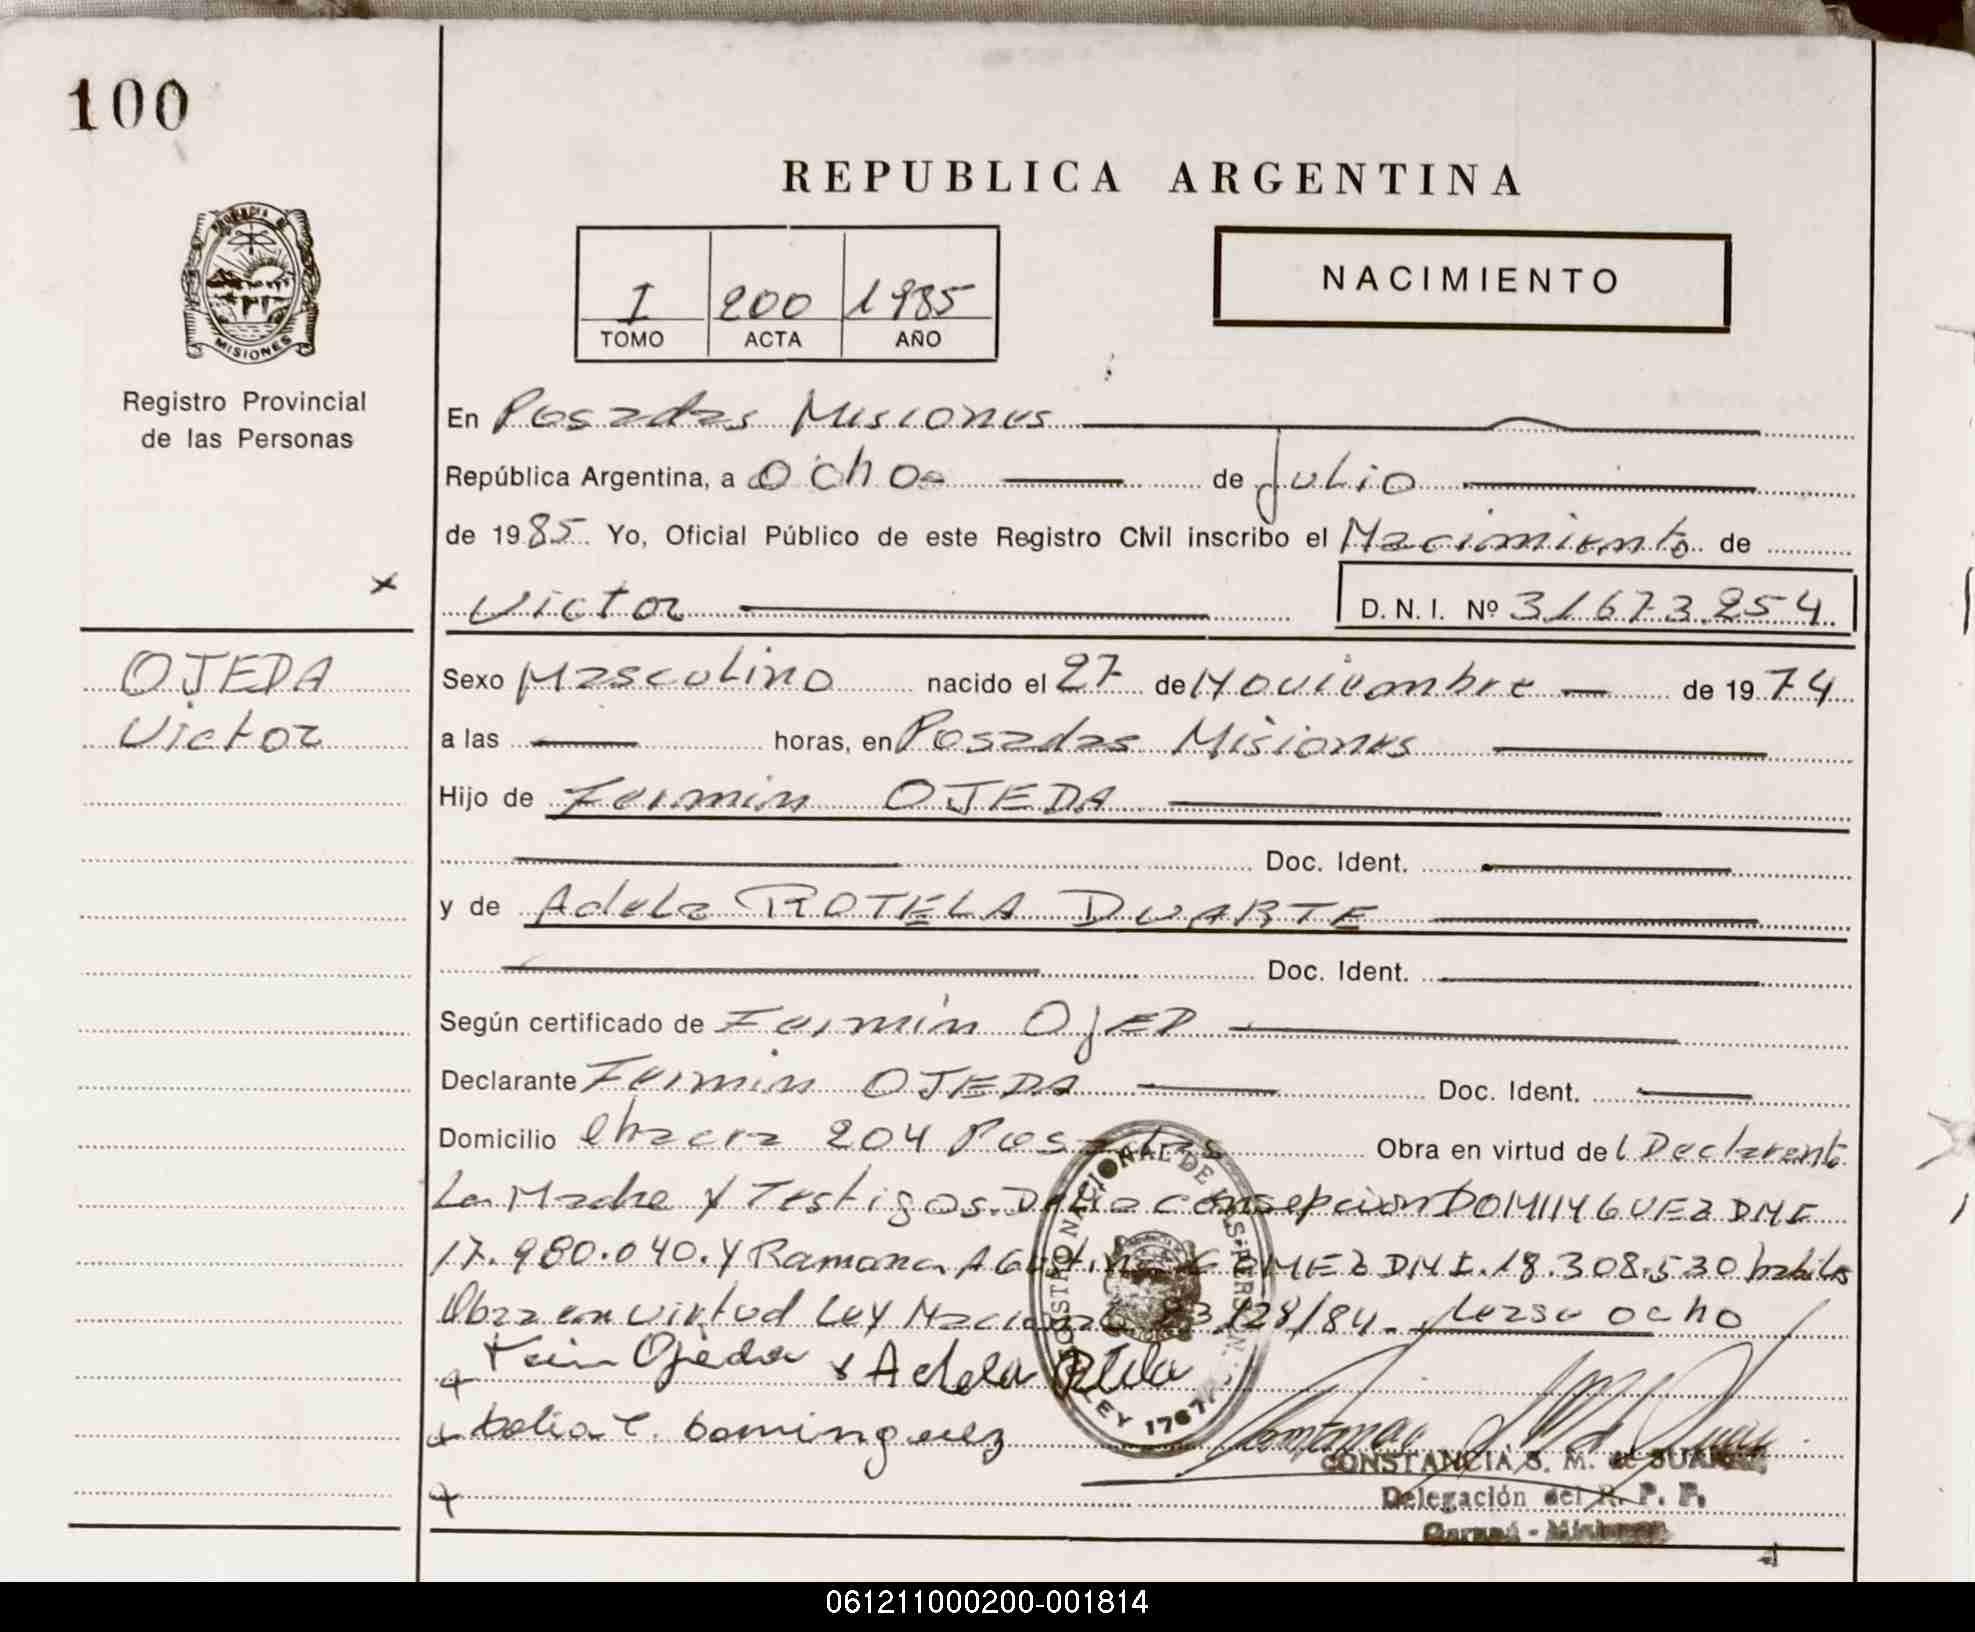 100
REPUBLICA ARGENTINA
I 200 1985
TOMO ACTA AÑO
NACIMIENTO
PROVINCIA DE
MISIONES
Registro Provincial
de las Personas
OJEDA
Victor
En Posadas Misiones
República Argentina, a ocho de Julio
de 1985 Yo, Oficial Público de este Registro Civil inscribo el Nacimiento de
Victor D.N.I. Nº 31673254
Sexo Masculino nacido el 27 de Noviembre de 1974
a las horas, en Posadas Misiones
Hijo de Fermin OJEDA
Doc. Ident.
y de Adela ROTELA DUARTE
Doc. Ident.
Según certificado de Fermin OjED
Declarante Fermin OJEDA Doc. Ident.
Domicilio chacra 204 Posadas Obra en virtud del Declarante
La Madre y Testigos. Delia Consepcion DOMINGUEZ DNI
17.980.040. y Ramona Agustina GOMEZ DNI. 18.308.530 habiles
Obra en virtud Ley Nacional 23128/84. ocho
Ojeda x Adela Rotela
Delia C. Dominguez
REGISTRO NACIONAL DE LAS PERSONAS
LEY 17671
CONSTANCIA S. M. de SUAREZ
Delegación del R. P. P.
Garupá - Misiones
061211000200-001814